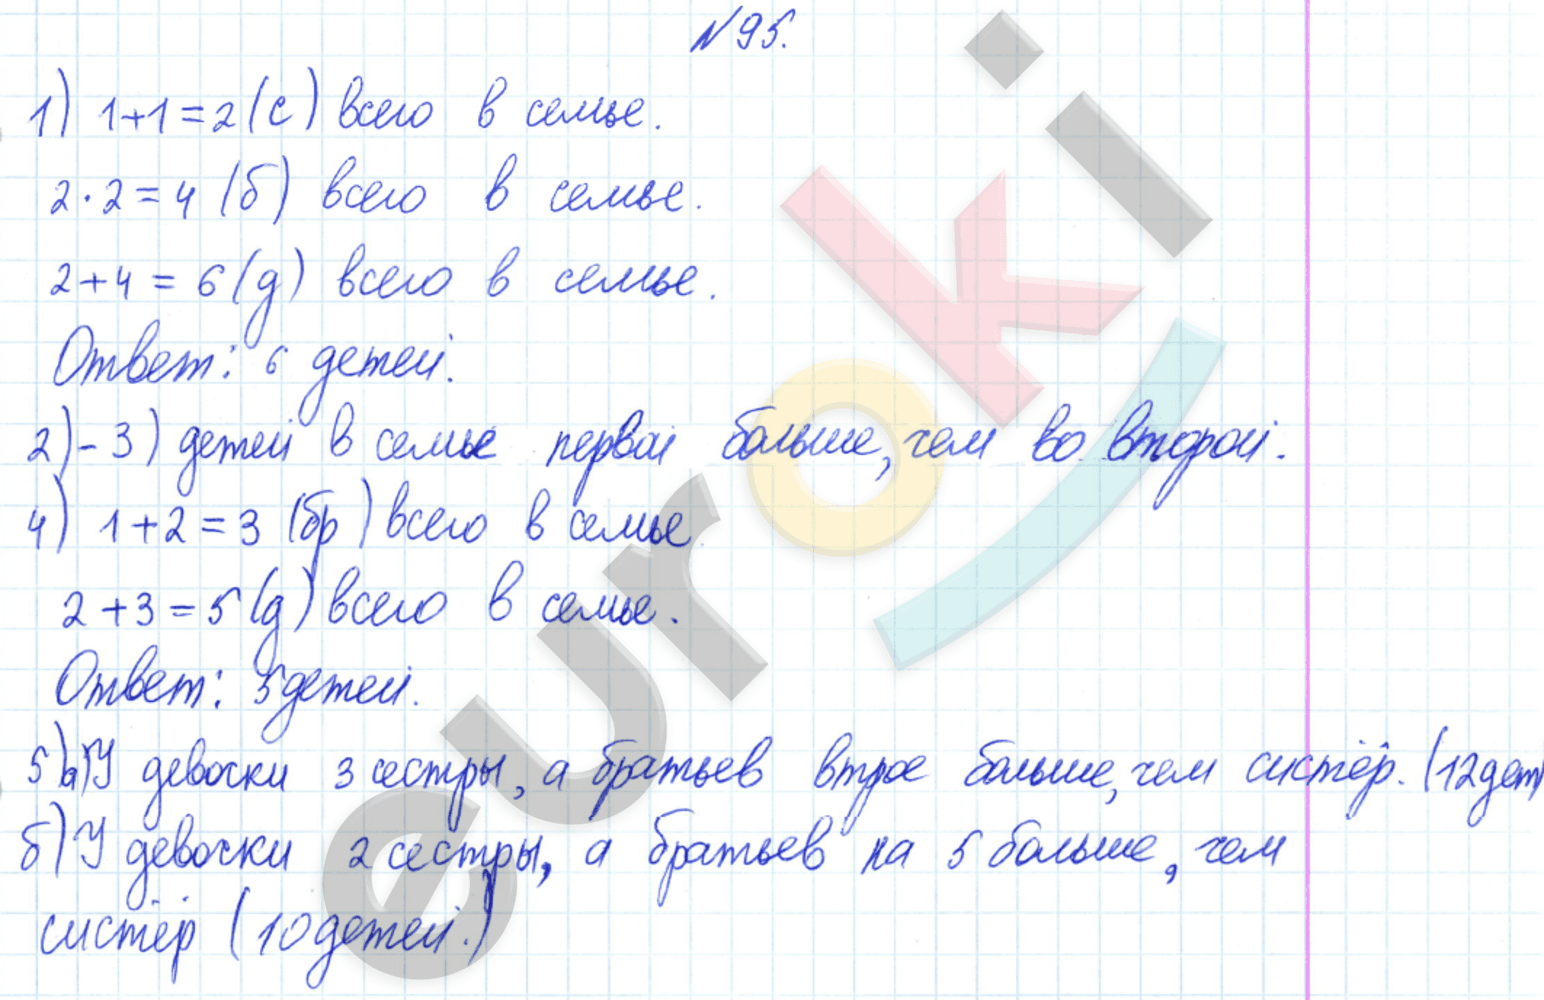 №95.
1) 1+1=2(с) всего в семье.
2·2=4 (б) всего в семье.
2+4 = 6(д) всего в семье.
Ответ: 6 детей.
2)-3) детей в семье первой больше, чем во второй.
4) 1+2=3 (бр) всего в семье.
2+3=5(д) всего в семье.
Ответ: 5 детей.
5) а) У девочки 3 сестры, а братьев втрое больше, чем систёр. (12 дет)
б) У девочки 2 сестры, а братьев на 5 больше, чем
систёр (10 детей.)
euroki